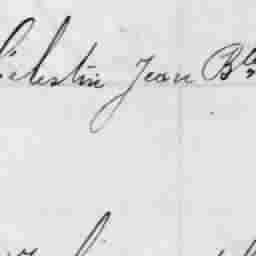 Célestin Jean Bte